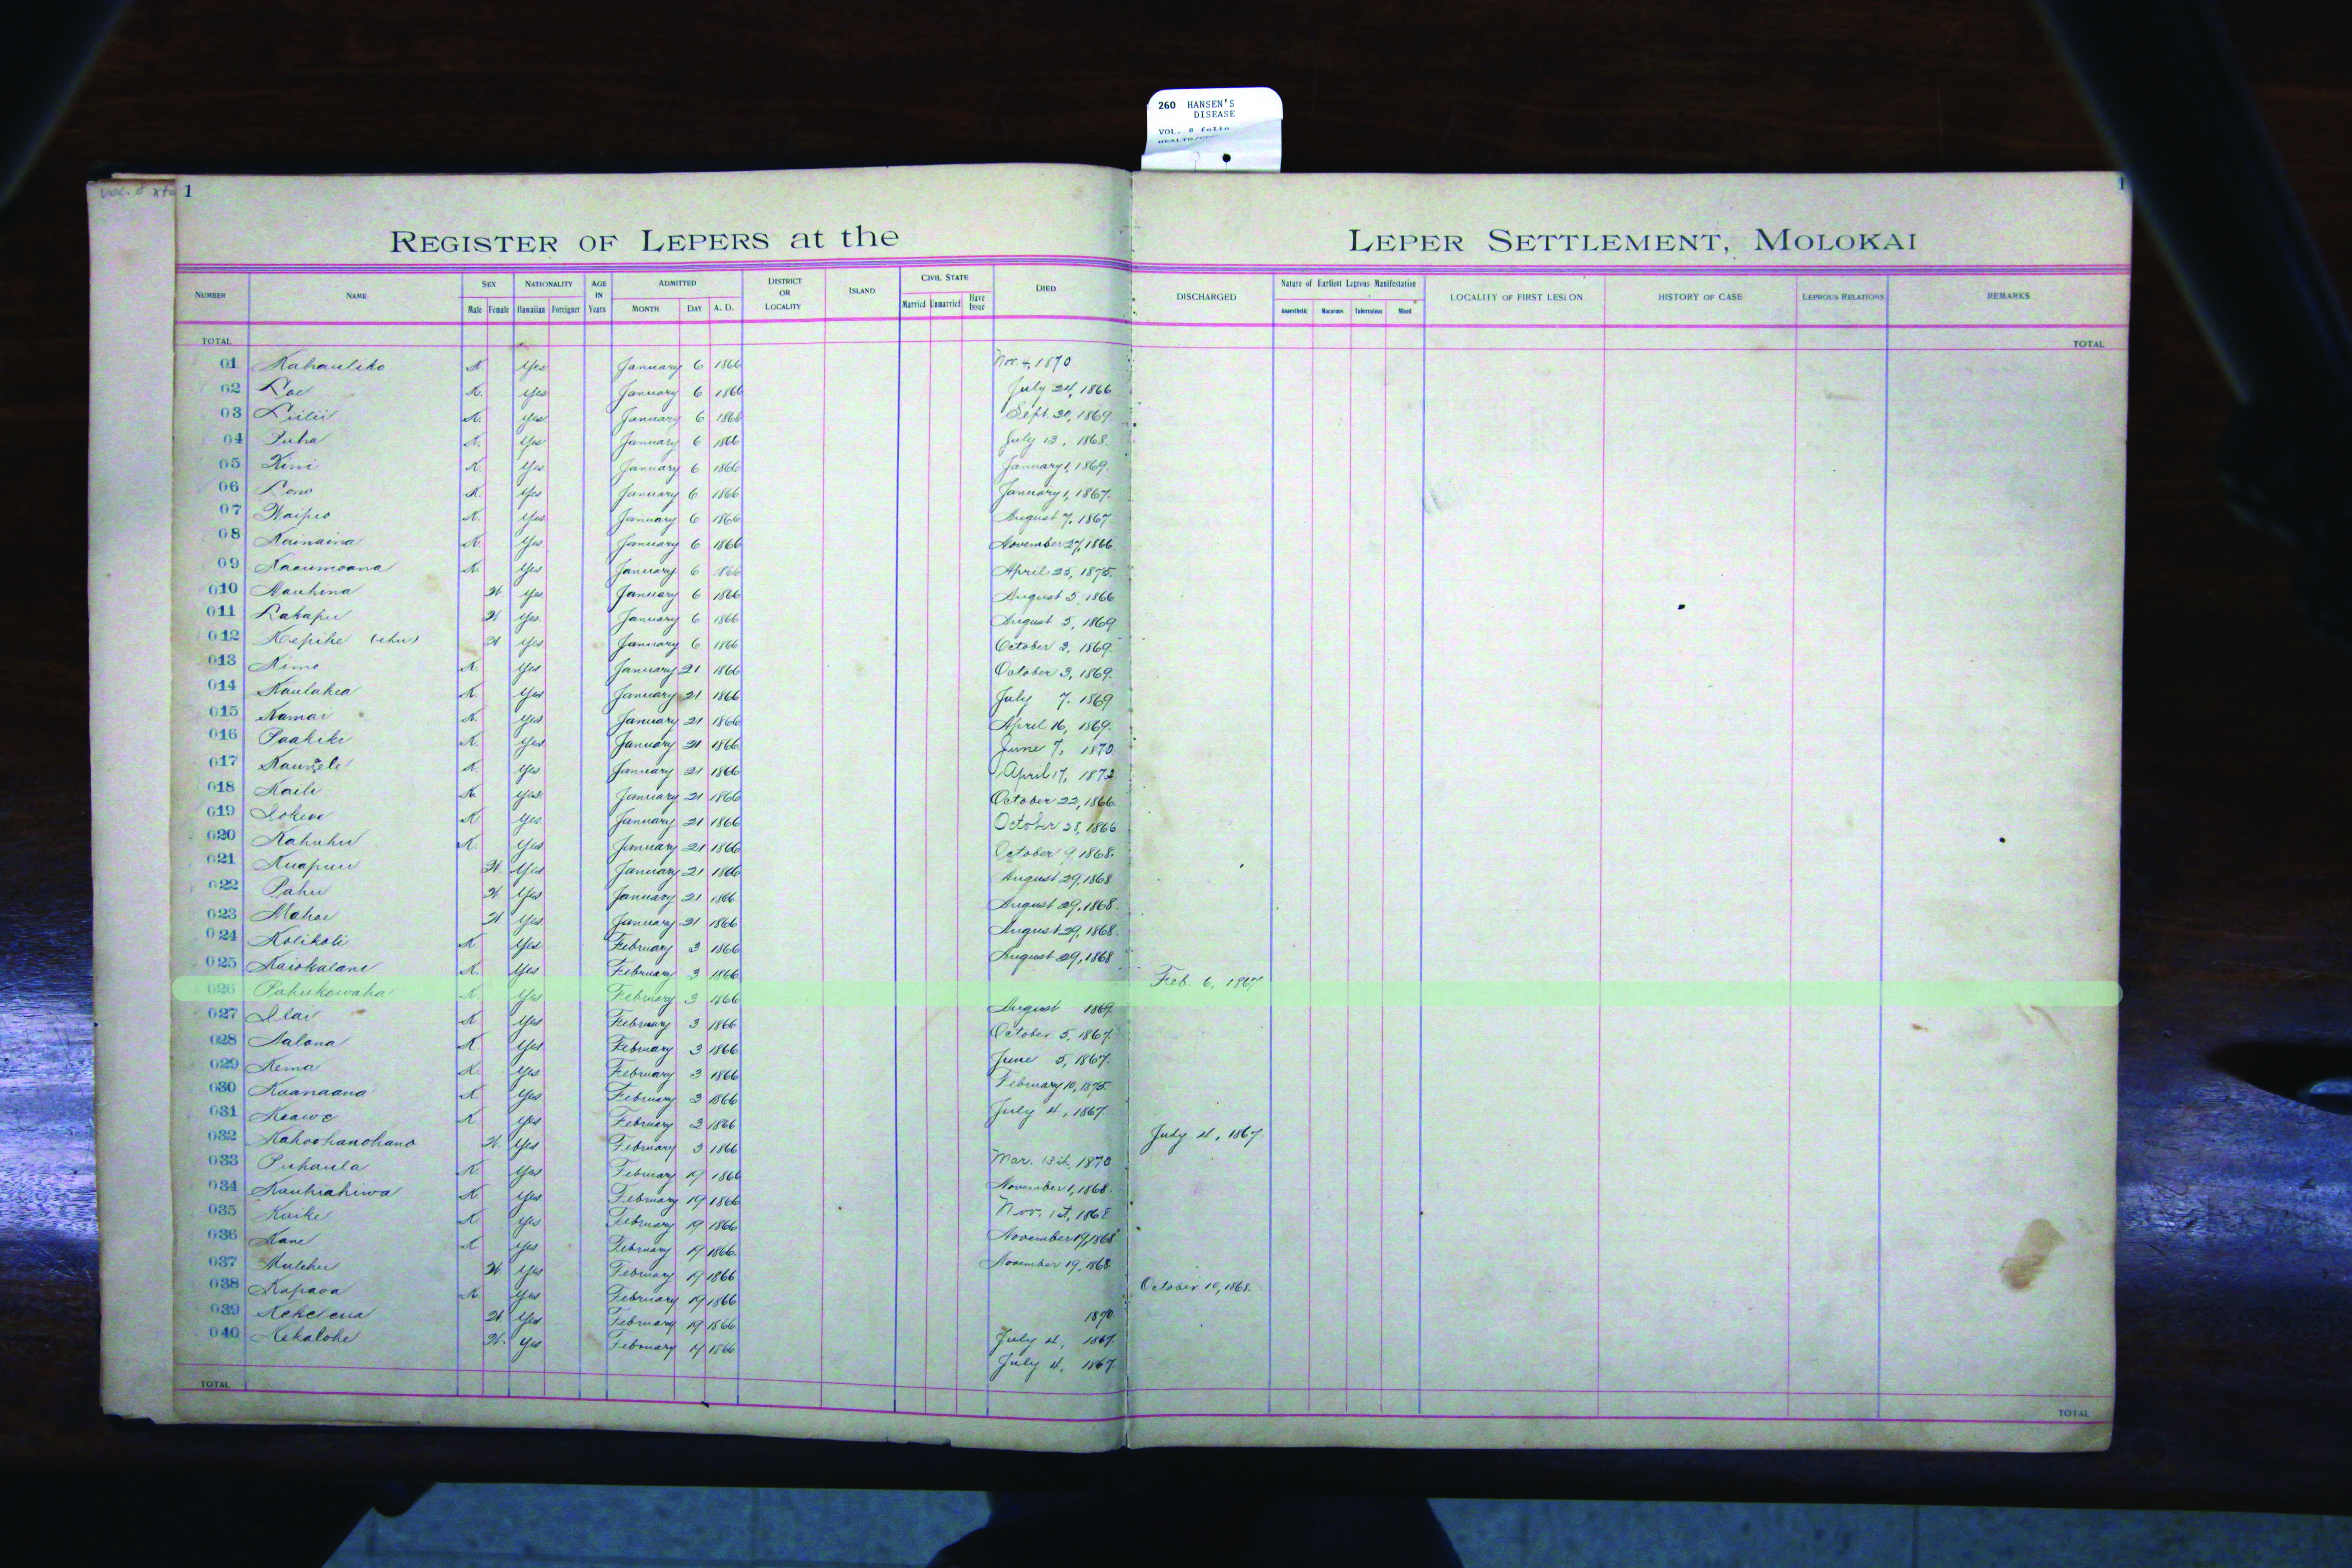 260 HANSEN'S
DISEASE
VOL. 8 folio
1
1
REGISTER OF LEPERS at the LEPER SETTLEMENT, MOLOKAI
NUMBER NAME SEX Male Female NATIONALITY Hawaiian Foreigner AGE IN Years ADMITTED MONTH DAY A. D. DISTRICT OR LOCALITY ISLAND CIVIL STATE Married Unmarried Have Issue DIED DISCHARGED Nature of Earliest Leprous Manifestation Anaesthetic Macurous Tuberculous Mixed LOCALITY OF FIRST LESION HISTORY OF CASE LEPROUS RELATIONS REMARKS
TOTAL TOTAL
01 Kahauliko K. Yes January 6 1866 Nov. 4, 1870
02 Loe K. Yes January 6 1866 July 24, 1866
03 Liilii K. Yes January 6 1866 Sept. 20, 1869
04 Puha K. Yes January 6 1866 July 13, 1868
05 Kini K. Yes January 6 1866 January 1, 1869.
06 Lono K. Yes January 6 1866 January 1, 1867.
07 Waipio K. Yes January 6 1866 August 7, 1867
08 Kainaina K. Yes January 6 1866 November 27, 1866
09 Kaaumoana K. Yes January 6 1866 April 25, 1875.
010 Mauhina W Yes January 6 1866 August 5, 1866
011 Lakapu W Yes January 6 1866 August 5, 1869
012 Kepihe (ehu) W Yes January 6 1866 October 3, 1869.
013 Kimo K. Yes January 21 1866 October 3, 1869.
014 Kaulahea K Yes January 21 1866 July 7, 1869
015 Kamai K. Yes January 21 1866 April 16, 1869.
016 Paakiki K. Yes January 21 1866 June 7, 1870
017 K. Yes January 21 1866 April 17, 1872
018 Kaili K. Yes January 21 1866 October 22, 1866
019 Iokewe K Yes January 21 1866 October 28, 1866
020 Kahuhu K. Yes January 21 1866 October 9, 1868.
021 Kuapuu W. Yes January 21 1866 August 29, 1868
022 Pahu W Yes January 21 1866 August 29, 1868.
023 Mahoe W Yes January 21 1866 August 29, 1868.
024 Kolikoli K Yes February 3 1866 August 29, 1868
025 Kaiokalani K. Yes February 3 1866 Feb. 6, 1867
026 Pahukowaha K. Yes February 3 1866 August 1869
027 Ilai K Yes February 3 1866 October 5, 1867.
028 Aalona K Yes February 3 1866 June 5, 1867.
029 Kema K. Yes February 3 1866 February 10, 1875
030 Kaanaana K Yes February 3 1866 July 4, 1867
031 Keawe K. Yes February 3 1866 July 4, 1867
032 Kahoohanohano W. Yes February 3 1866 Mar. 13th, 1870
033 Puhaula K. Yes February 19 1866 November 1, 1868.
034 Kauhiahiwa K Yes February 19 1866 Nov. 1st, 1868
035 Kuike K. Yes February 19 1866 November 19, 1868
036 Kane K Yes February 19 1866 November 19, 1868
037 Mulehu W. Yes February 19 1866 October 10, 1868.
038 Kapaoa K. Yes February 19 1866 1870
039 Kekelena W Yes February 19 1866 July 4, 1867.
040 Kekalohe W. Yes February 19 1866 July 4, 1867.
TOTAL TOTAL